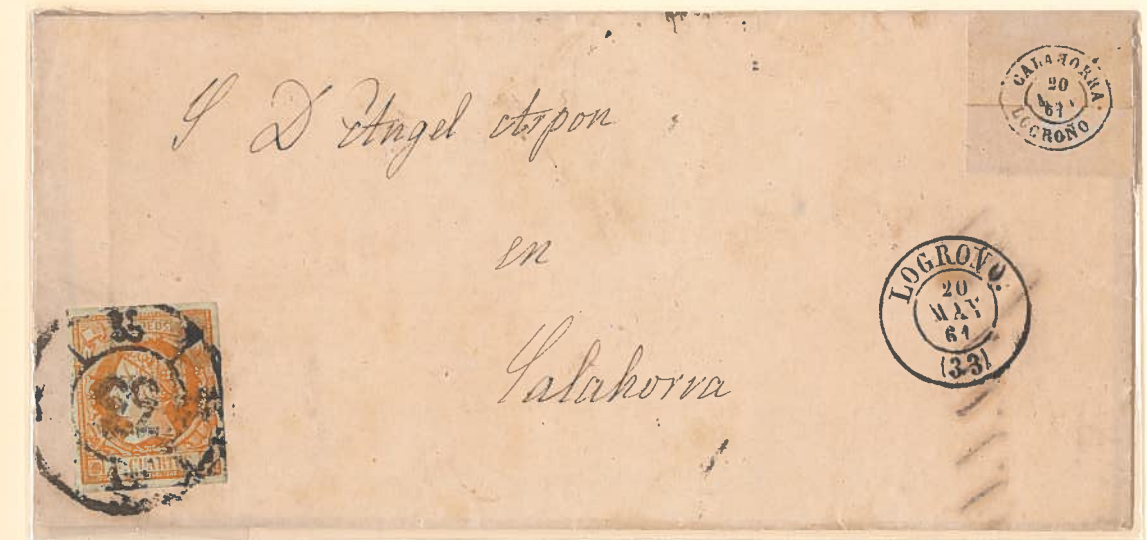 S D Angel Arpon
en
Calahorra
CALAHORRA
20
61
LOGROÑO
LOGROÑO.
20
MAY
61
(33)
33
CUART